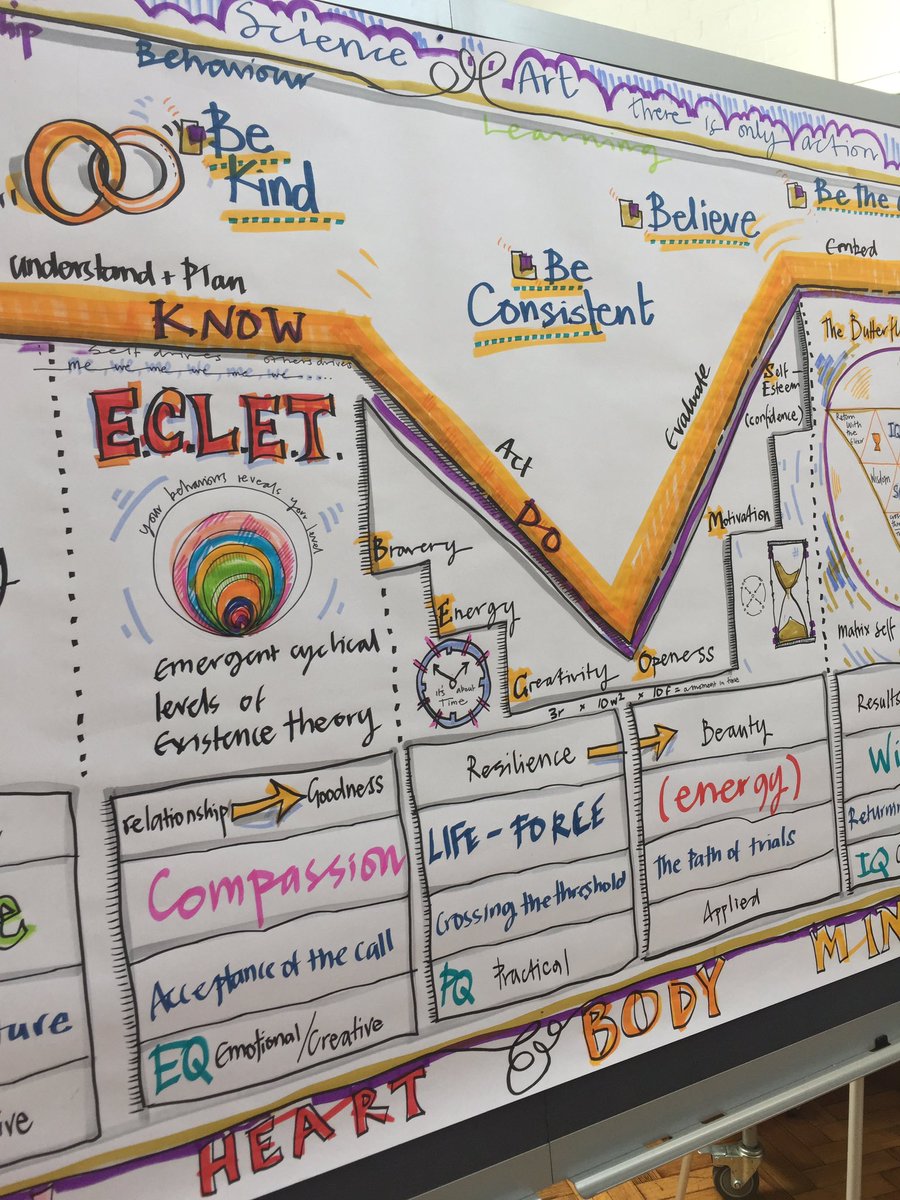 hip
Science
Art
there is only action
Behaviour
Learning
Be
Kind
Believe
Be the
Be
Consistent
Understand + Plan
Embed
KNOW
Self drives others drives
me, we, me, we, me, we...
E.C.L.E.T.
your behaviors reveals your level
Emergent cyclical
levels of
Existence theory
Act
DO
Evaluate
Bravery
Energy
Creativity
Openess
Motivation
Self
Esteem
(confidence)
it's about
Time
3r x 10w² x 10f = a moment in time
The Butterfl
Return
With the
Elixir
IQ
Wisdom
Matrix self
relationship
Goodness
Compassion
Acceptance of the call
EQ Emotional/Creative
Resilience
LIFE-FORCE
Crossing the threshold
PQ Practical
Beauty
(energy)
The Path of trials
Applied
Results
Wi
Returnin
IQ
e
ture
ive
HEART & BODY MIN